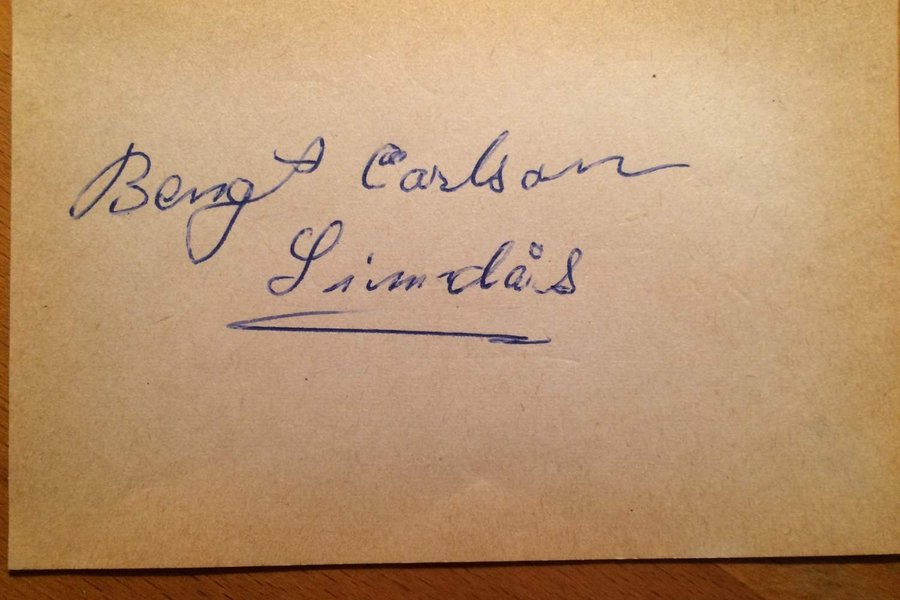 Bengt Carlson
Limdås